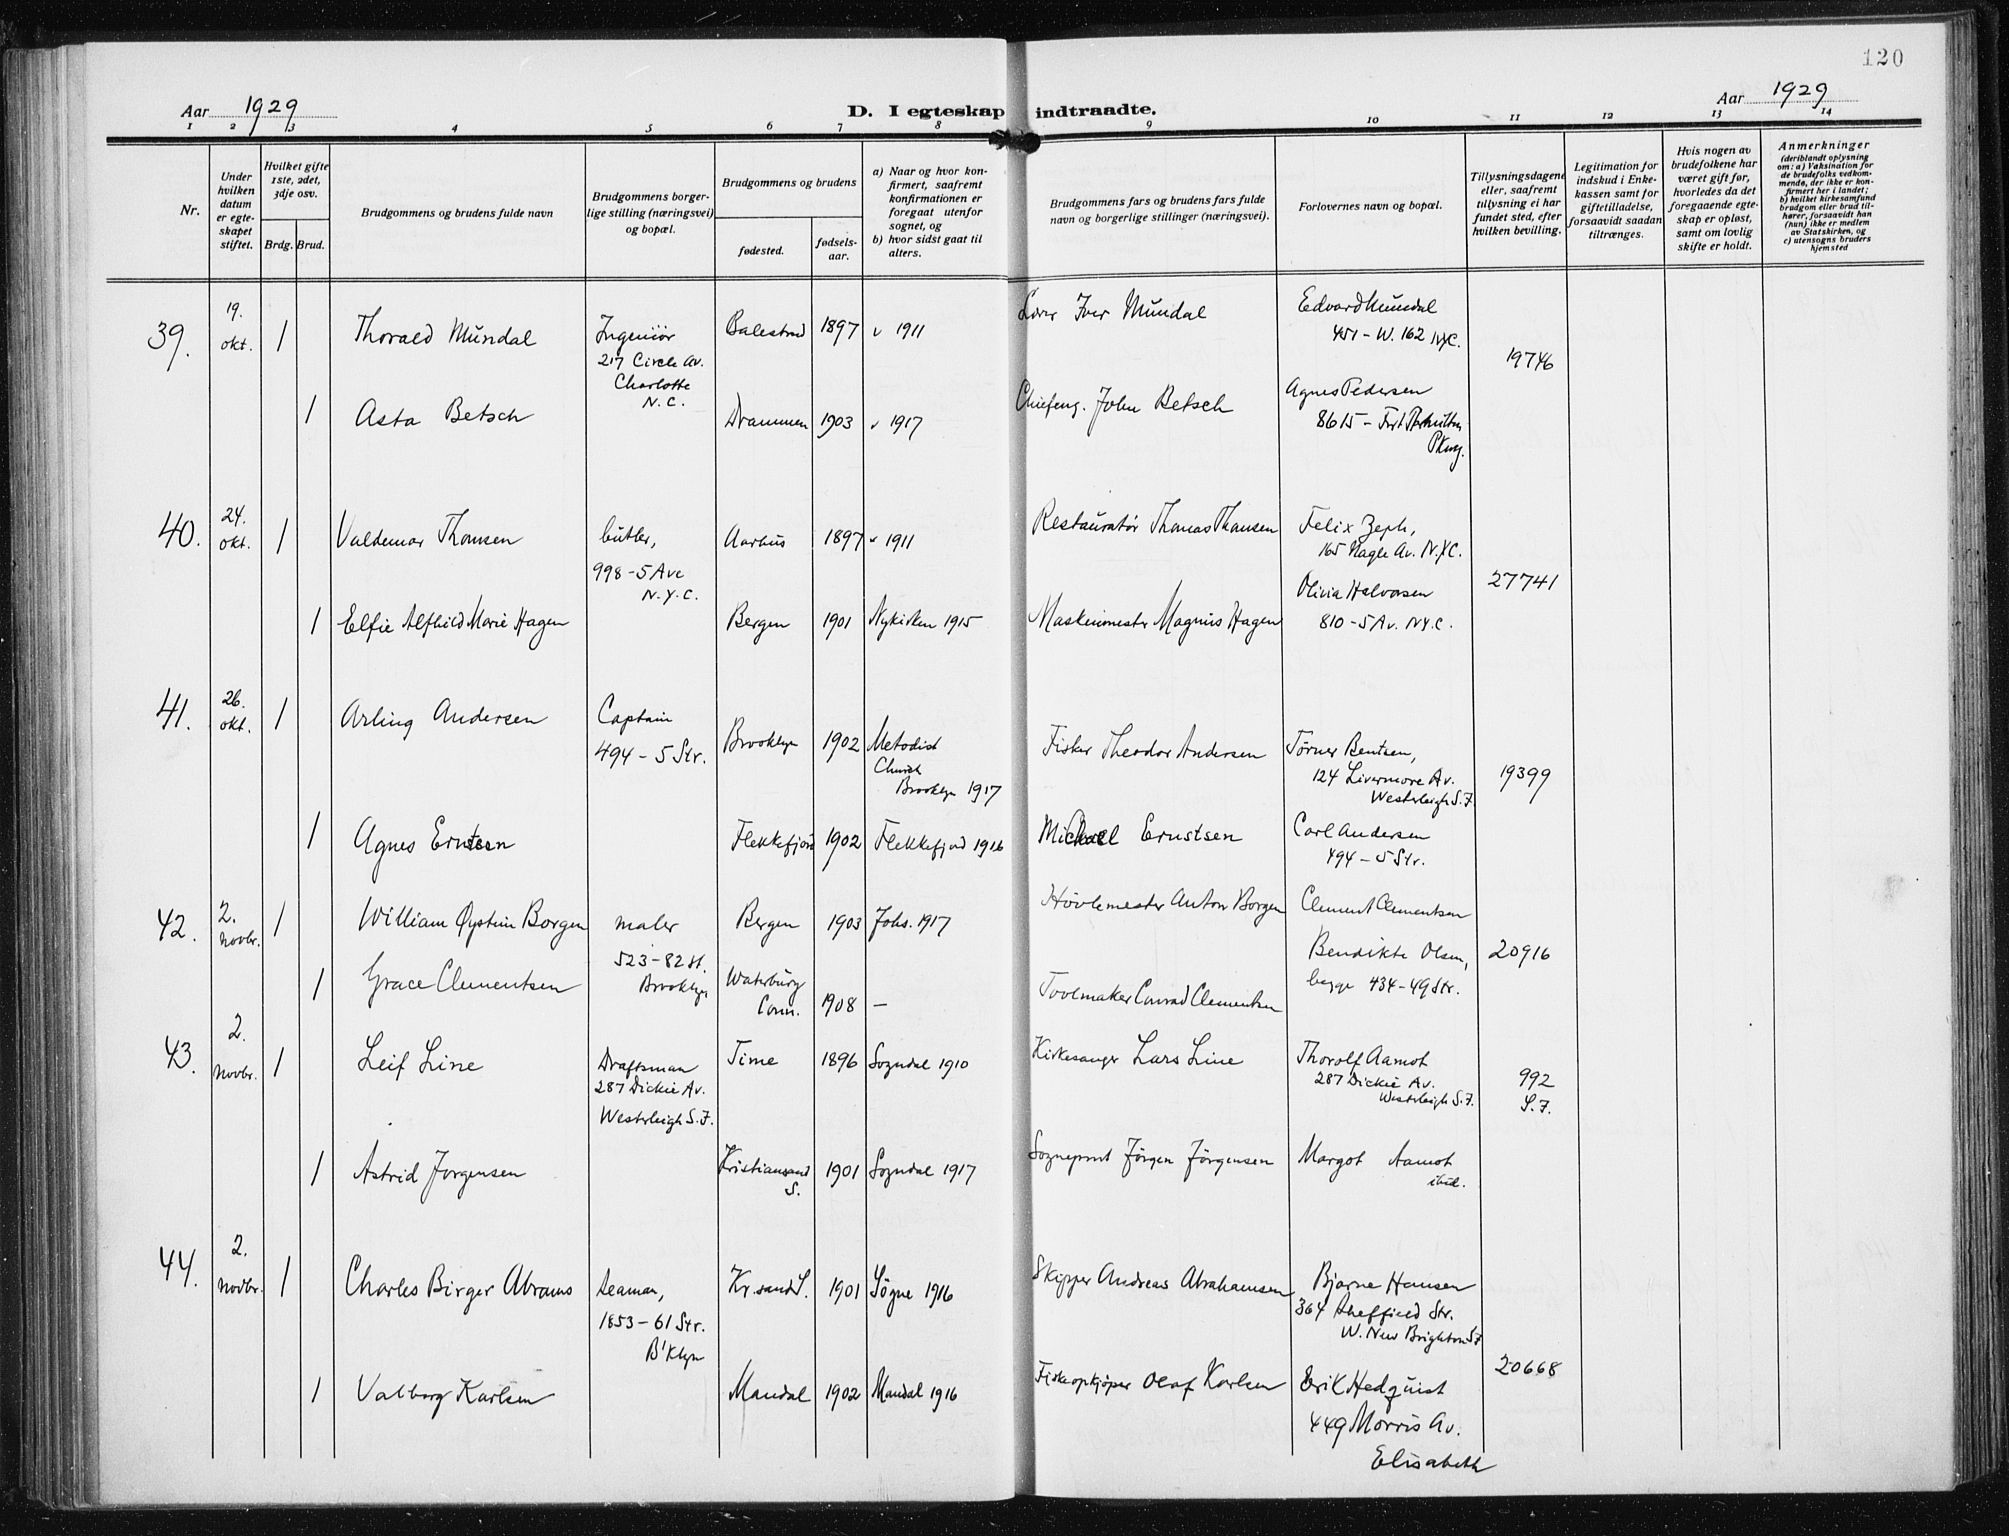 120
Aar 1929
D. I egteskap indtraadte.
Aar 1929
1 2 3 4 5 6 7 8 9 10 11 12 13 14
Nr.
Under
hvilken
datum
er egte-
skapet
stiftet.
Hvilket gifte
1ste, 2det,
3dje osv.
Brdg. Brud.
Brudgommens og brudens fulde navn
Brudgommens borger-
lige stilling (næringsvei)
og bopæl.
Brudgommens og brudens
fødested.
fødsels-
aar.
a) Naar og hvor kon-
firmert, saafremt
konfirmationen er
foregaat utenfor
sognet, og
b) hvor sidst gaat til
alters.
Brudgommens fars og brudens fars fulde
navn og borgerlige stillinger (næringsvei).
Forlovernes navn og bopæl.
Tillysningsdagene
eller, saafremt
tillysning ei har
fundet sted, efter
hvilken bevilling.
Legitimation for
indskud i Enke-
kassen samt for
giftetilladelse,
forsaavidt saadan
tiltrænges.
Hvis nogen av
brudefolkene har
været gift før,
hvorledes da det
foregaaende egte-
skap er opløst,
samt om lovlig
skifte er holdt.
Anmerkninger
(deriblandt oplysning
om: a) Vaksination for
de brudefolks vedkom-
mende, der ikke er kon-
firmert her i landet;
b) hvilket kirkesamfund
brudgom eller brud til-
hører, forsaavidt han
(hun) ikke er medlem
av Statskirken, og
c) utensogns bruders
hjemsted
39. 19. okt. 1 Thorald Mundal
Ingeniør
217 Circle Av.
Charlotte
N.C.
Balestrand 1897 1911
Iver Mundal
Edvard Mundal
451 - W. 162 N.Y.C.
19746
1 Asta Betsch
Drammen 1903 1917
Chiefeng. John Betsch
Agnes Pedersen
8615 - Fort Hamilton
Pkwy.
40. 24. okt. 1 Valdemar Thomsen
butler,
998 - 5 Ave
N.Y.C.
Aarhus 1897 1911
Restauratør Thomas Thomsen
Felix Zeph,
165 Nagle Av. N.Y.C.
27741
1 Elfie Alfhild Marie Hagen
Bergen 1901 Nykirken 1915
Maskinmester Magnus Hagen
Olivia Halvorsen
810 - 5 Av. N.Y.C.
41. 26. okt. 1 Arling Andersen
Captain
494 - 5 Str.
Brooklyn 1902 Metodist
Church
Brooklyn 1917
Fisker Theodor Andersen
Tørner Bentsen,
124 Livermore Av.
Westerleigh S.I.
19399
1 Agnes Erntsen
Flekkefjord 1902 Flekkefjord 1916
Michael Ernstsen
Carl Andersen
494 - 5 Str.
42. 2. novbr. 1 William Øystein Borgen
maler
523 - 82 st.
Brooklyn
Bergen 1903 Johs. 1917
Høvlemester Anton Borgen
Clement Clementsen
Bendikte Olsen,
begge 434 - 49 Str.
20916
1 Grace Clementsen
Waterbury
Conn. 1908 —
Toolmaker Conrad Clementsen
43. 2. novbr. 1 Leif Line
Draftsman
287 Dickie Av.
Westerleigh S.I.
Time 1896 Sogndal 1910
Kirkesanger Lars Line
Thorolf Aamot
287 Dickie Av.
Westerleigh S.I.
992
S.I.
1 Astrid Jorgensen
Kristiansand
S. 1901 Sogndal 1917
Sogneprest Jørgen Jørgensen
Margot Aamot
ibid.
44. 2. novbr. 1 Charles Birger Abrams
seaman,
1853 - 61 Str.
B'klyn
Kr.sand S. 1901 Søgne 1916
Skipper Andreas Abrahamsen
Bjarne Hansen
364 Sheffield Str.
W. New Brighton S.I
20668
1 Valborg Karlsen
Mandal 1902 Mandal 1916
Fiskeopkjøper Olaf Karlsen
Erik Hedquist
449 Morris Av.
Elisabeth